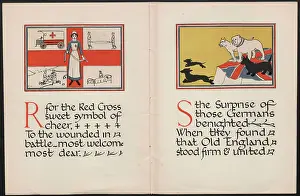 R for the Red Cross
sweet symbol of
cheer,
To the wounded in
battle most welcome
most dear.
S the Surprise of
those Germans
benighted
When they found
that Old England
stood firm & united